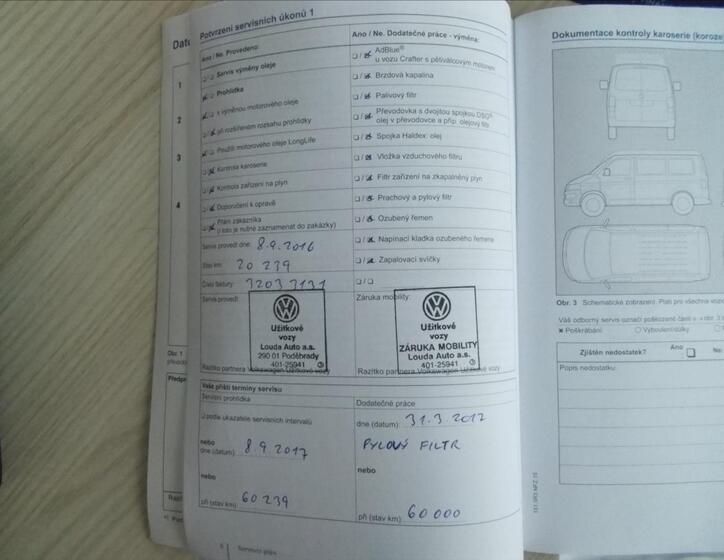 Potvrzení servisních úkonů 1
Ano / Ne. Provedeno:
Servis výměny oleje
Prohlídka
s výměnou motorového oleje
při rozšířeném rozsahu prohlídky
Použití motorového oleje LongLife
Kontrola karoserie
Kontrola zařízení na plyn
Doporučení k opravě
Přání zákazníka
(i zde je nutné zaznamenat do zakázky)
Servis proveden dne: 8.9.2016
Stav km: 20 239
Číslo faktury: 32033131
Servis provedl:
Užitkové
vozy
Louda Auto a.s.
290 01 Poděbrady
401-25941
Razítko partnera Volkswagen Užitkové vozy
Ano / Ne. Dodatečné práce - výměna:
AdBlue®
u vozu Crafter s pětiválcovým motorem
Brzdová kapalina
Palivový filtr
Převodovka s dvojitou spojkou DSG®
olej v převodovce a příp. olejový filtr
Spojka Haldex: olej
Vložka vzduchového filtru
Filtr zařízení na zkapalněný plyn
Prachový a pylový filtr
Ozubený řemen
Napínací kladka ozubeného řemene
Zapalovací svíčky
Záruka mobility:
Užitkové
vozy
ZÁRUKA MOBILITY
Louda Auto a.s.
401-25941
Razítko partnera Volkswagen Užitkové vozy
Vaše příští termíny servisu
Servisní prohlídka
podle ukazatele servisních intervalů
nebo
dne (datum): 8.9.2017
nebo
při (stav km): 60 239
Dodatečné práce
dne (datum): 31.3.2017
PYLOVÝ FILTR
nebo
při (stav km): 60 000
Servisní plán
Dokumentace kontroly karoserie (koroze
Obr. 3 Schematické zobrazení. Platí pro všechna
Váš odborný servis označí poškozené části
Poškrábání
Vyboulení/důlky
Zjištěn nedostatek?
Ano
Ne
Popis nedostatku:
Datu
1
2
3
4
Obr. 1
Předpi